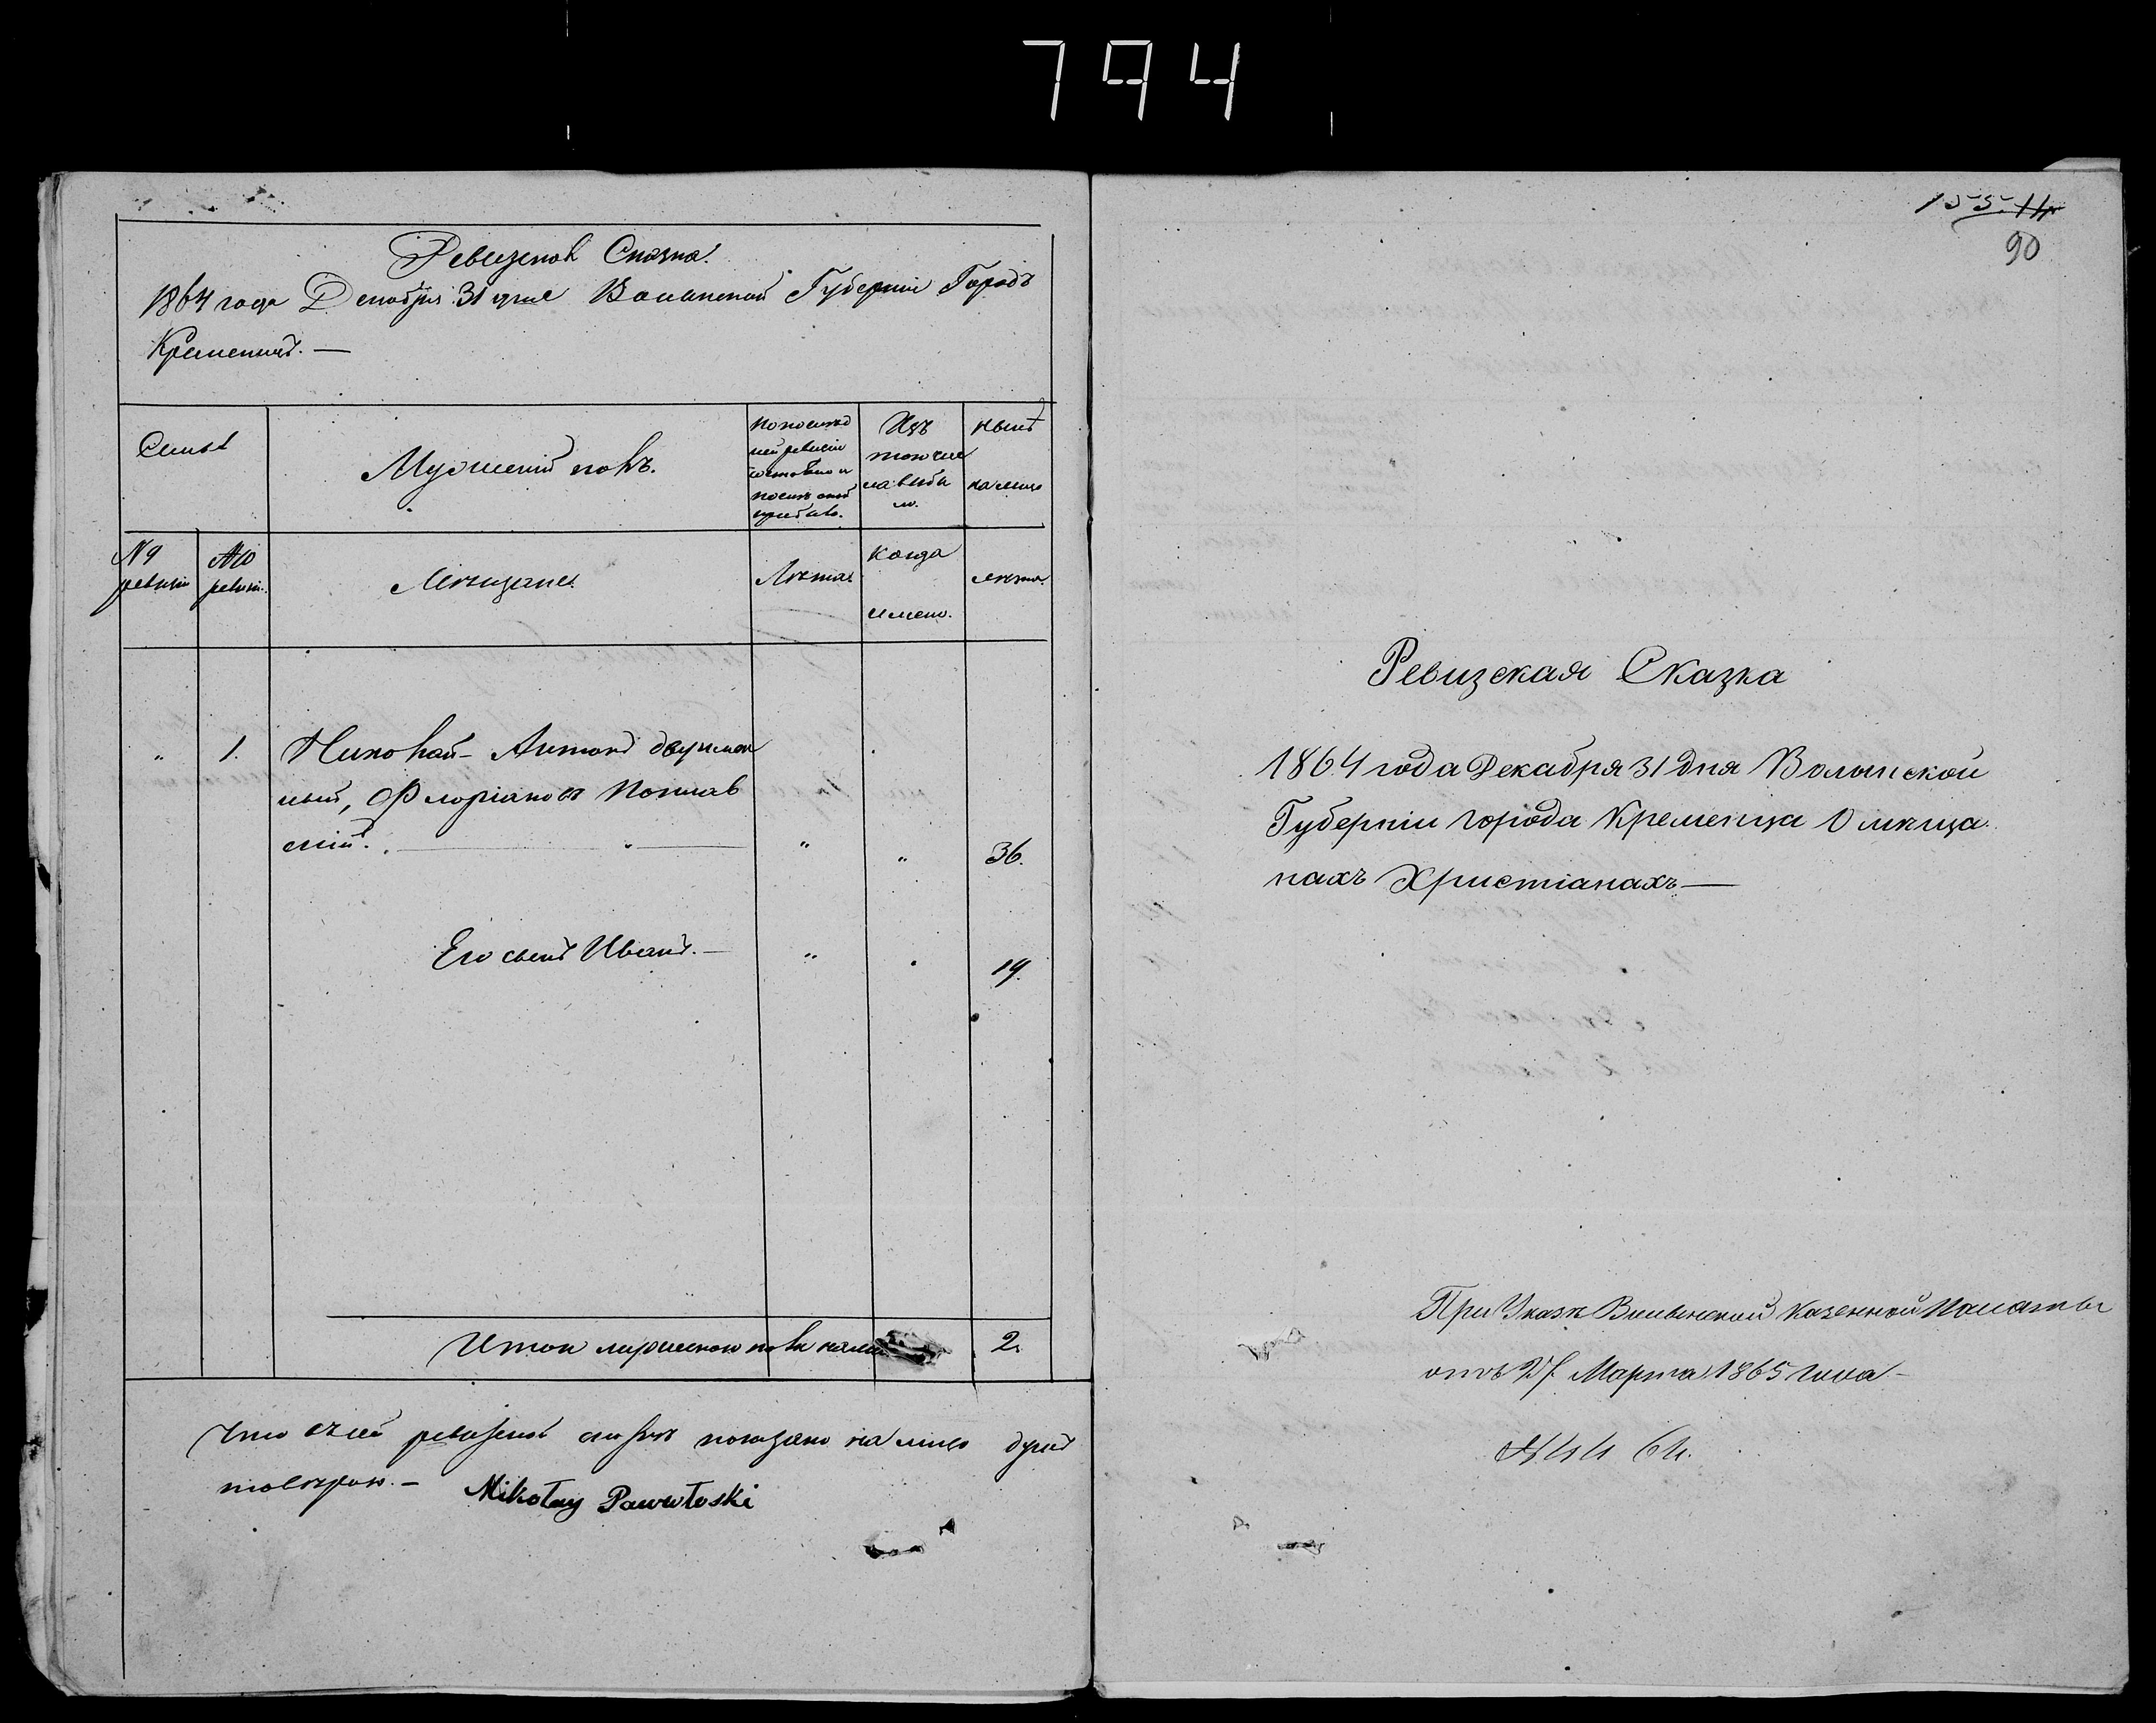 794
Ревизская Сказка.
1864 года Декабря 31 дня Волынской Губернии Городъ
Кременецъ. —
Семьи
Мужескій полъ.
По послѣд
ней ревизіи
состояло и
послѣ оной
прибыло.
Изъ
того чис
ла выбы
ло.
Нынѣ
на лицо
№ 9
ревизіи
№ 10
ревизіи.
Мѣщане.
Лѣта
Когда
имено.
лѣта.
" 1. Николай - Антонъ двуимен
ный, Флоріановъ Павлов
скій. " " 36.
Его сынъ Иванъ. — " 19.
Итого мужеского пола на лицо 2.
Что въ сей ревизской сказкѣ показано на лицо душъ
Mikołay Pawołoski
155. 14
90
Ревизская Сказка
1864 года Декабря 31 дня Волынской
Губерніи города Кременца О мѣща
нахъ Христіанахъ —
При Указѣ Волынской Казенной Палаты
отъ Марта 1865 года —
№